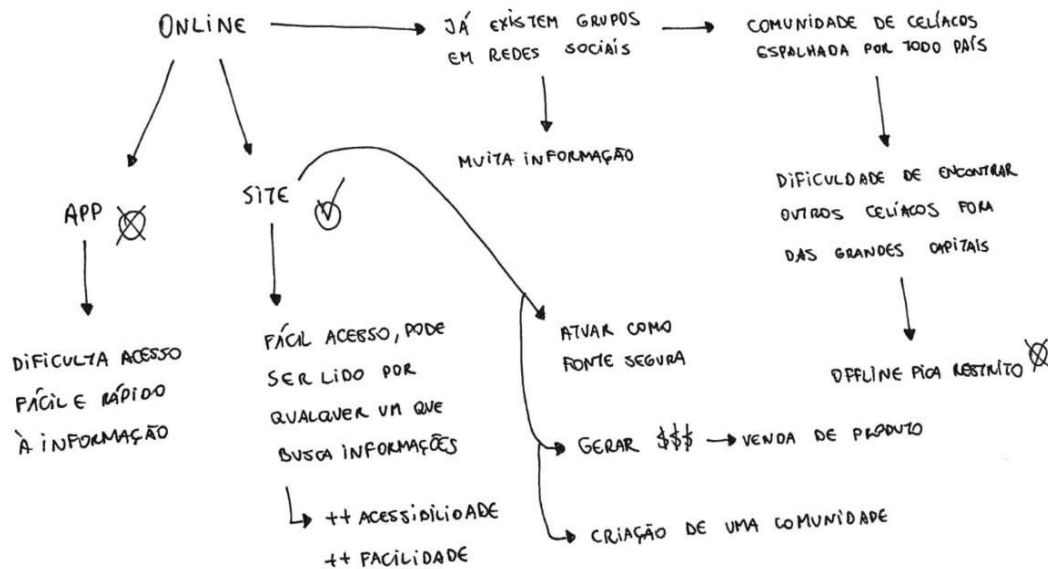 ONLINE
JÁ EXISTEM GRUPOS
EM REDES SOCIAIS
COMUNIDADE DE CELÍACOS
ESPALHADA POR TODO PAÍS
MUITA INFORMAÇÃO
DIFICULDADE DE ENCONTRAR
OUTROS CELÍACOS FORA
DAS GRANDES CAPITAIS
APP
SITE
DIFICULTA ACESSO
FÁCIL E RÁPIDO
À INFORMAÇÃO
FÁCIL ACESSO, PODE
SER LIDO POR
QUALQUER UM QUE
BUSCA INFORMAÇÕES
++ ACESSIBILIDADE
++ FACILIDADE
ATUAR COMO
FONTE SEGURA
OFFLINE FICA RESTRITO
GERAR $$$
VENDA DE PRODUTO
CRIAÇÃO DE UMA COMUNIDADE